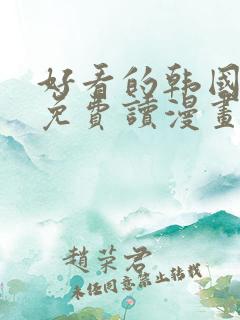 好看的韩国
免費讀漫畫
趙荣君
未任同意禁止转载